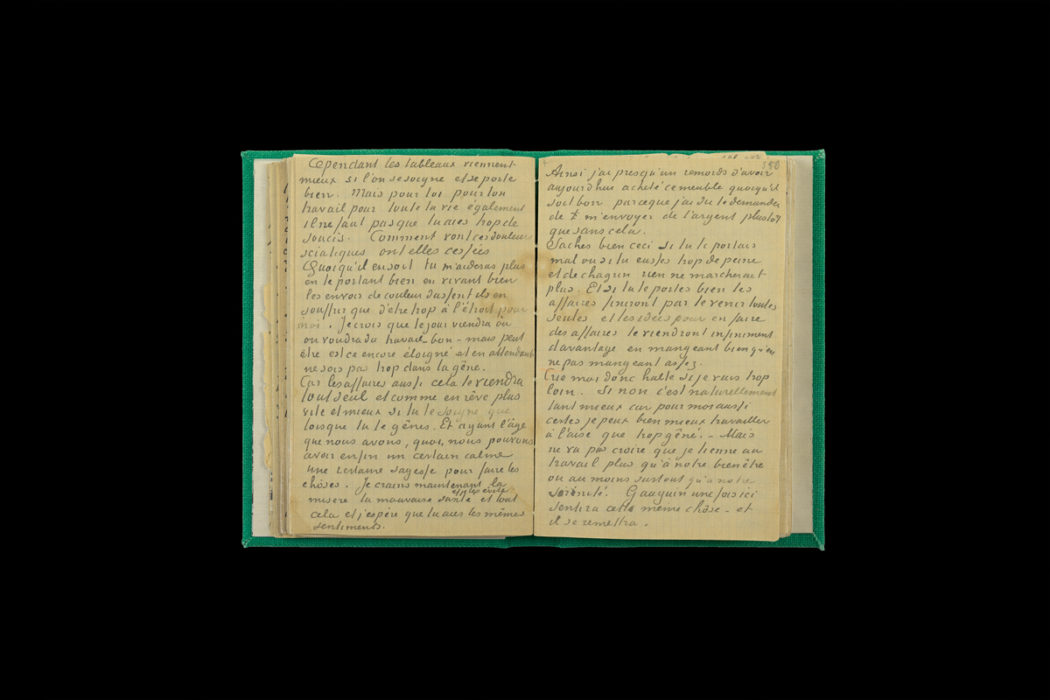 Cependant les tableaux viennent
mieux si l'on se soigne et se porte
bien. Mais pour toi pour ton
travail pour toute ta vie également
il ne faut pas que tu aies trop de
soucis. Comment vont ces douleurs
sciatiques ont elles cessées
Quoiqu'il en soit tu m'aideras plus
en te portant bien en vivant bien
les envois de couleur dussent ils en
souffrir que d'être trop à l'étroit pour
moi. Je crois que le jour viendra où
on voudra du travail bon – mais peut
être est ce encore éloigné et en attendant
ne sois pas trop dans la gêne.
Car les affaires aussi cela te viendra
tout seul et comme en rêve plus
vite et mieux si tu te soigne que
lorsque tu te gênes. Et ayant l'âge
que nous avons, quoi, nous pouvons
avoir enfin un certain calme
une certaine sagesse pour faire les
choses. Je crains maintenant la
misère la mauvaise santé et tout
cela et j'espère que tu aies les mêmes
sentiments.
380
Ainsi j'ai presqu'un remords d'avoir
aujourd'hui acheté ce meuble quoiqu'il
soit bon parceque j'ai du te demander
de m'envoyer de l'argent plus tôt
que sans cela.
Saches bien ceci si tu te portais
mal ou si tu eusses trop de peine
et de chagrin rien ne marcherait
plus. Et si tu te portes bien les
affaires finiront par te venir toutes
seules et les idées pour en faire
des affaires te viendront infiniment
davantage en mangeant bien qu'en
ne pas mangeant assez.
Crie moi donc halte si je vais trop
loin. Si non c'est naturellement
tant mieux car pour moi aussi
certes je peux bien mieux travailler
à l'aise que trop gêné. – Mais
ne va pas croire que je tienne au
travail plus qu'à notre bien être
ou au moins surtout qu'à notre
sérénité. Gauguin une fois ici
sentira cette même chose – et
il se remettra.